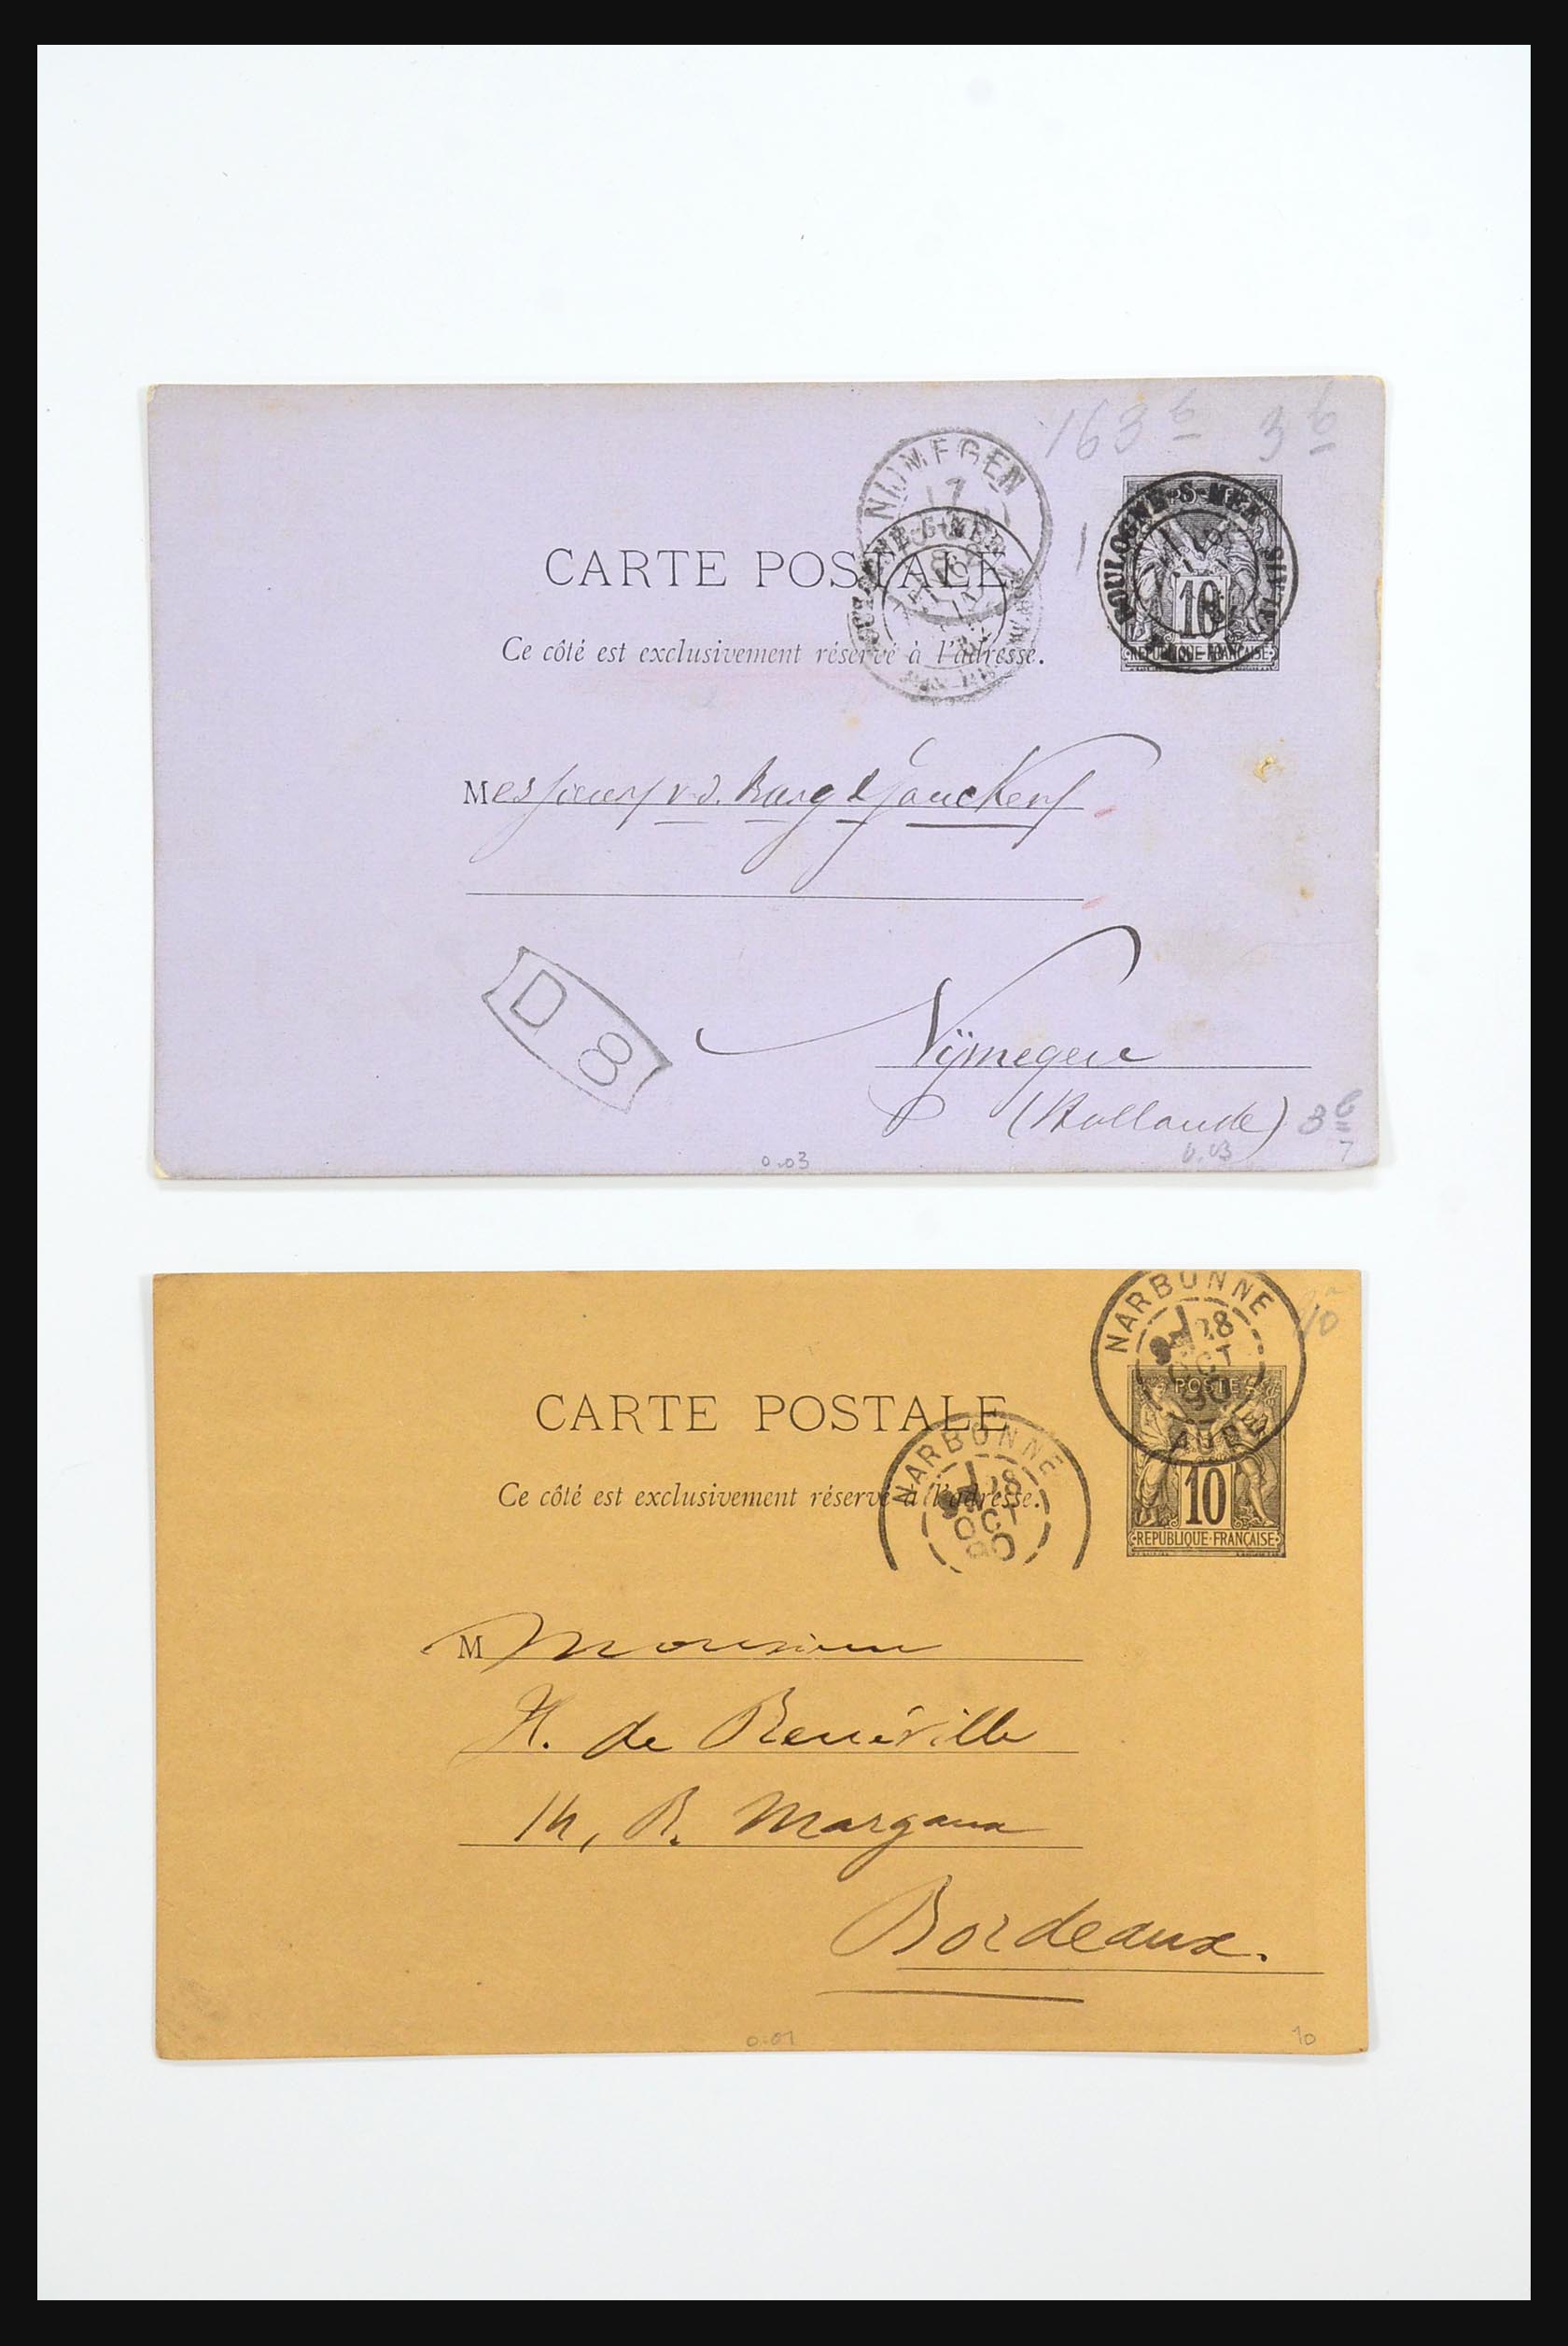 163 b 3 b
NIJMEGEN
17
BOULOGNE-S-MER
10
REPUBLIQUE FRANÇAISE
CARTE POSTALE
Ce côté est exclusivement réservé à l'adresse.
Messieurs v.d. Burg & Jonckers
D 8
Nijmegen
(Hollande)
3 b
7
0.03
0.03
NARBONNE
28
OCT
90
AUDE
10
POSTE
10
REPUBLIQUE FRANÇAISE
CARTE POSTALE
NARBONNE
28
OCT
90
Ce côté est exclusivement réservé à l'adresse.
M Monsieur
H. de Renéville
14, R. Margaux
Bordeaux.
0.01
10